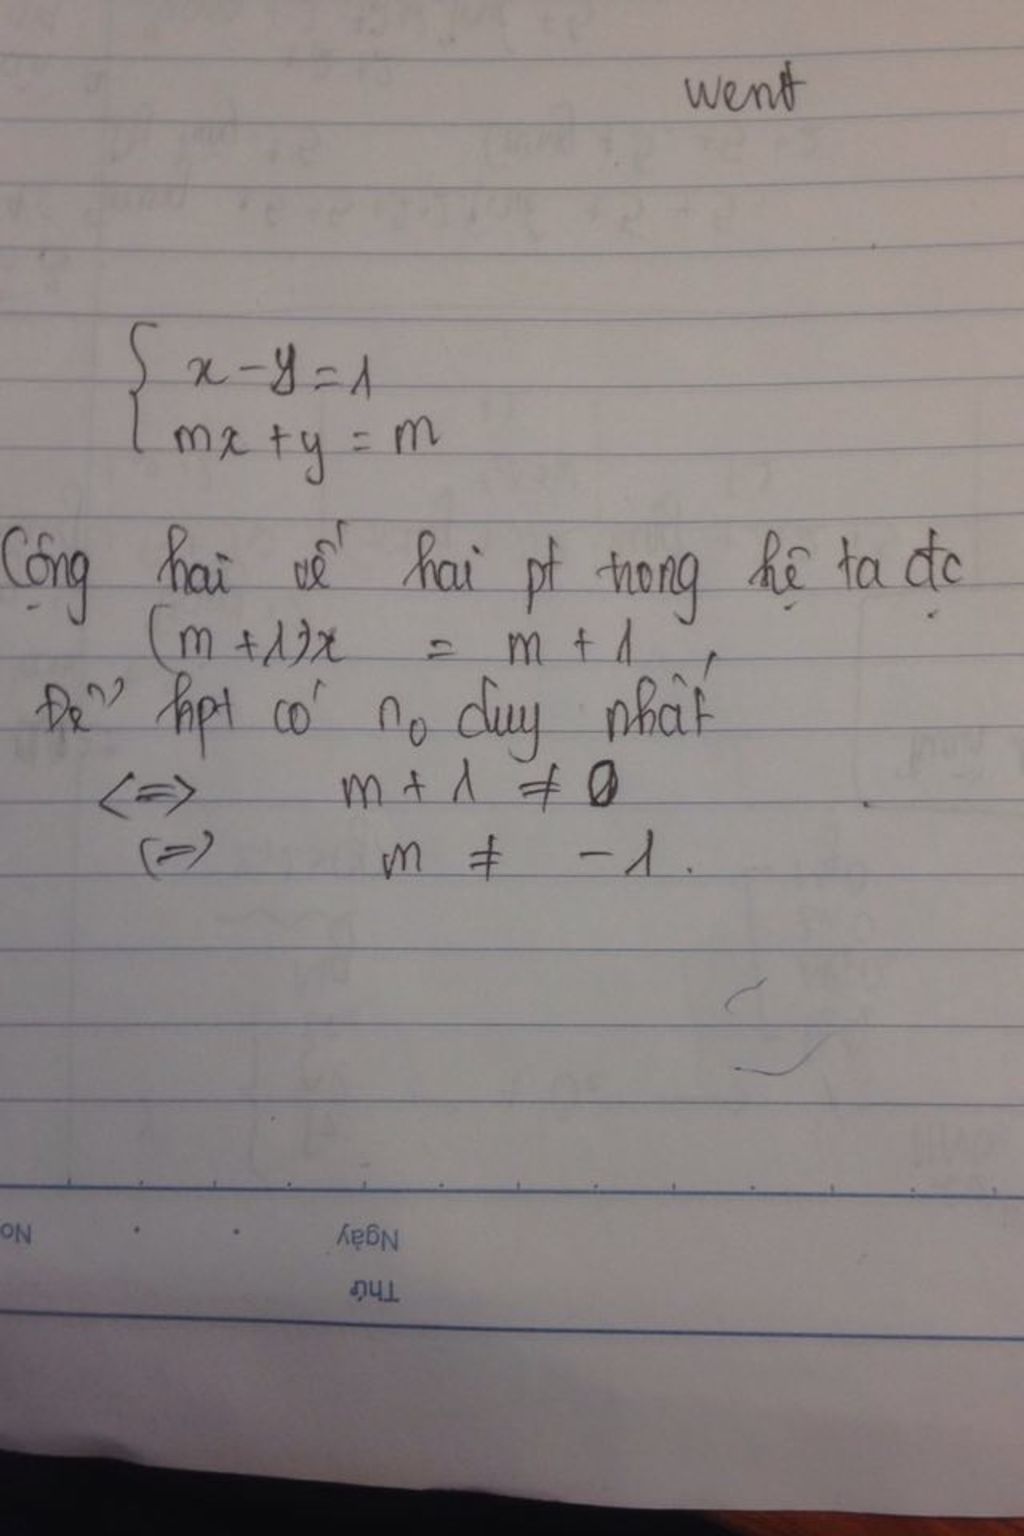 went
{ x - y = 1
mx + y = m
Cộng hai vế hai pt trong hệ ta đc
(m + 1)x = m + 1,
Để hpt có n₀ duy nhất
<=> m + 1 ≠ 0
(=> m ≠ -1.
No
Ngày
Thứ